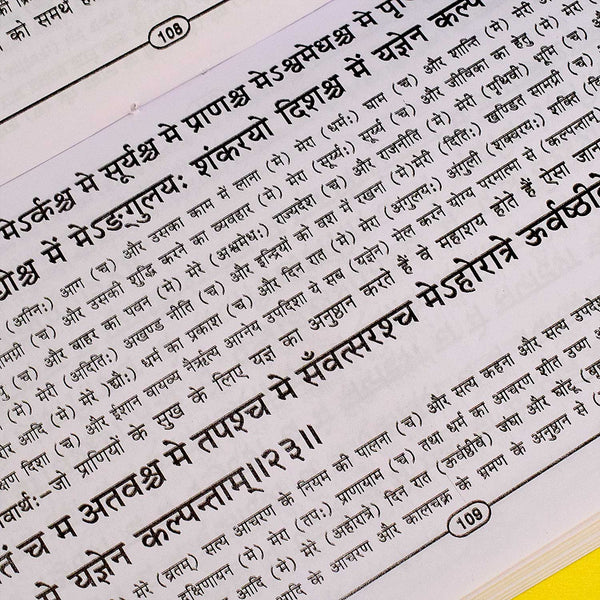 को समर्थ हो
108
मेऽर्कश्च मे सूर्यश्च मे प्राणश्च मेऽश्वमेधश्च मे
श्च में मेऽङ्गुलयः शंकरयो दिशश्च में यज्ञेन
(अग्निः) आग (च) और उसका काम में लाना (मे) मेरा (धर्मः) घाम (च) और शान्ति (मे) मेरी
(च) और उसकी शुद्धि करने का व्यवहार (मे) मेरा (सूर्यः) सूर्य (च) और जीविका का हेतु (मे)
(च) और बाहर का पवन (मे) मेरे (अश्वमेधः) राज्यदेश (च) और राजनीति (मे) मेरी (पृथिवी) भूमि (च)
(मे) मेरी (अदितिः) अखण्ड नीति (च) और इन्द्रियों को वश में रखना (मे)मेरी (दितिः) खण्डित सामग्री (च)
आदि (मे) मेरे (द्यौः) धर्म का प्रकाश (च) और दिन रात (मे) मेरा (अंगुलयः) अंगुली (शक्वरयः) शक्ति
दिशा (च) और ईशान वायव्य नैऋत्य आग्नेय उपदिशा में सब (यज्ञेन) मेल करने योग्य परमात्मा से (कल्पन्ताम्)
र्थः-जो प्राणियों के सुख के लिए यज्ञ का अनुष्ठान करते हैं वे महाशय होते हैं ऐसा
च म अतवश्च मे तपश्च मे सँवत्सरश्च मेऽहोरात्रे
मे यज्ञेन कल्पन्ताम्॥२३॥
मेरे (व्रतम्) सत्य आचरण के नियम की पालना (च) और सत्य कहना और सत्य
दक्षिणायन (मे) मेरा (तपः) प्राणायाम (च) तथा धर्म का आचरण शीत उष्ण
आदि (मे) मेरे (अहोरात्रे) दिन रात (ऊर्वष्ठीवे) जंघा और घोंटू
आदि के आचरण और कालचक्र के भ्रमण के अनुष्ठान से
109